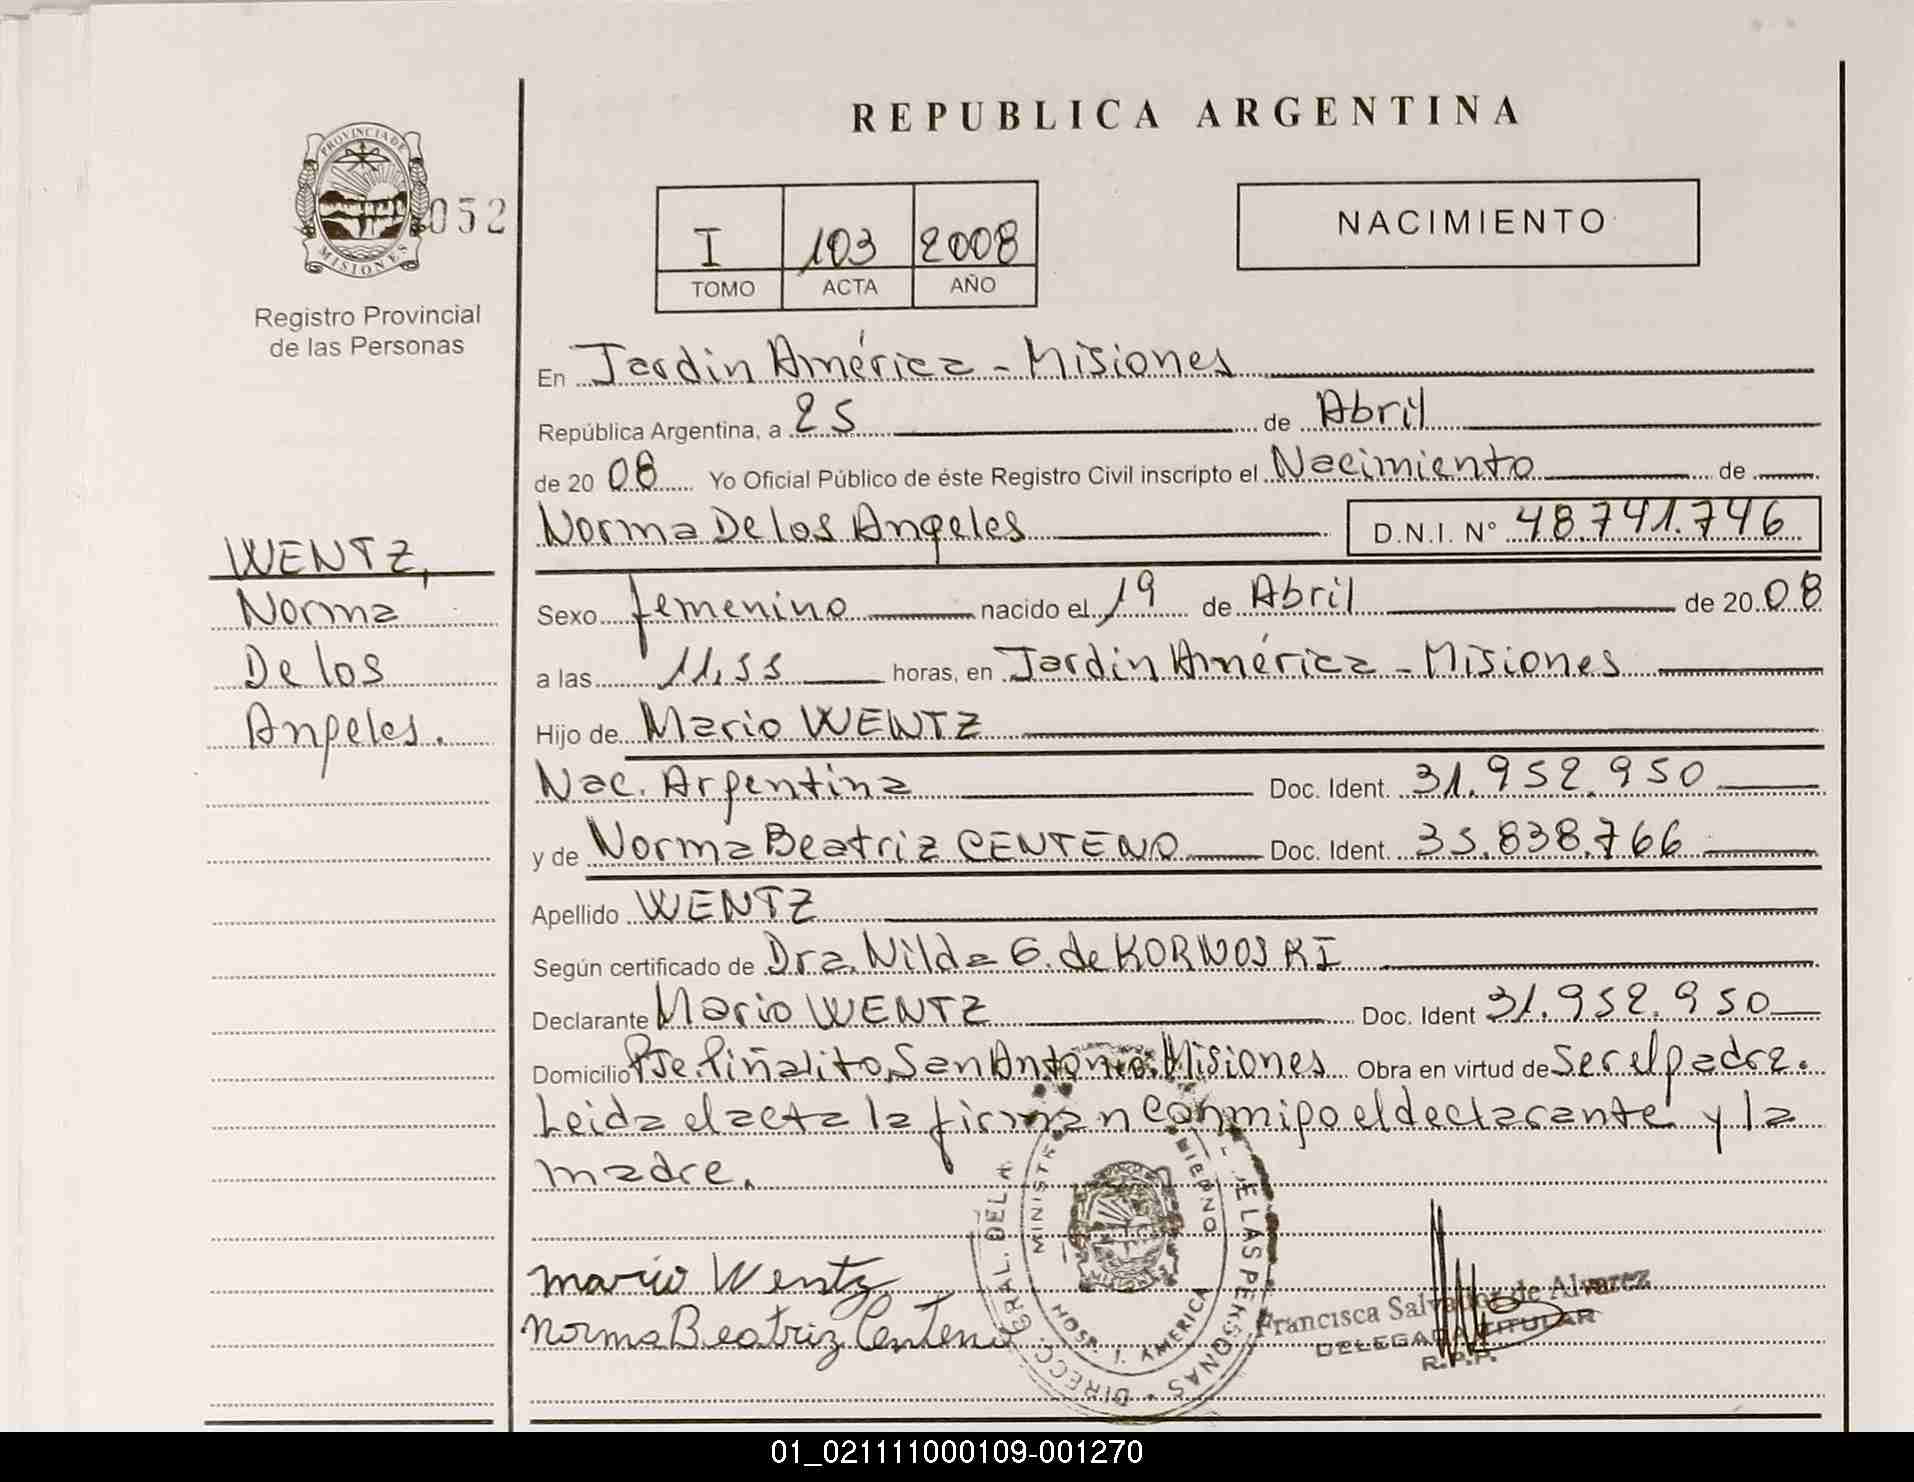 REPUBLICA ARGENTINA
PROVINCIA DE
MISIONES
052
Registro Provincial
de las Personas
I 103 2008
TOMO ACTA AÑO
NACIMIENTO
En Jardin América - Misiones
República Argentina, a 25 de Abril
de 2008 Yo Oficial Público de éste Registro Civil inscripto el Nacimiento de
Norma De los Angeles D.N.I. N° 48.741.746
WENTZ,
Norma
De los
Angeles.
Sexo femenino nacido el 19 de Abril de 2008
a las 11,55 horas, en Jardin América - Misiones
Hijo de Mario WENTZ
Nac. Argentina Doc. Ident. 31.952.950
y de Norma Beatriz CENTENO Doc. Ident. 35.838.766
Apellido WENTZ
Según certificado de Dra. Nilda G. de KORNOSKI
Declarante Mario WENTZ Doc. Ident 31.952.950
Domicilio Pje. Piñalito, San Antonio, Misiones Obra en virtud de Ser el padre.
Leida el acta la firman conmigo el declarante y la
madre.
Mario Wentz
Norma Beatriz Centeno
DIRECC. GRAL. DEL E LAS PERSONAS
J. AMERICA
Francisca Salvador de Alvarez
DELEGADA TITULAR
R.P.P.
01_021111000109-001270